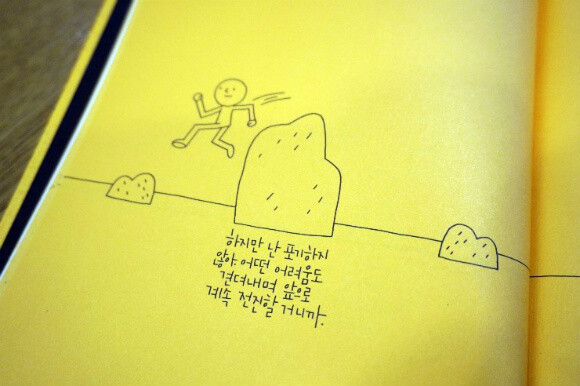 하지만 난 포기하지
않아. 어떤 어려움도
견뎌내며 앞으로
계속 전진할 거니까.